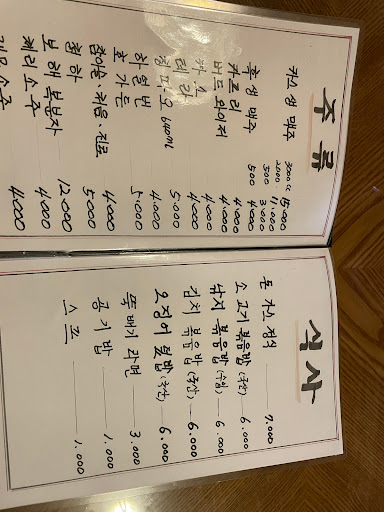 주류
카스 생 맥주 3000cc 15.000
2000 11.000
300 3.000
흑 생 맥주 500 4.000
카프리 4.000
버드와이저 4.000
카스 4.000
테라 4.000
640ML 5.000
하얼빈 4.000
호가든 5.000
참이슬.처음.진로 4.000
청하 5000
보해 복분자 12.000
체리 소주 4.000
소주 4.000
식사
돈까스 정식 7.000
소고기 볶음밥 (국산) 6.000
낙지 볶음밥 (수입) 6.000
김치 볶음밥 (국산) 6.000
오징어 덮밥 (국산) 6.000
뚝배기 라면 3.000
공기밥 1.000
스프 1.000